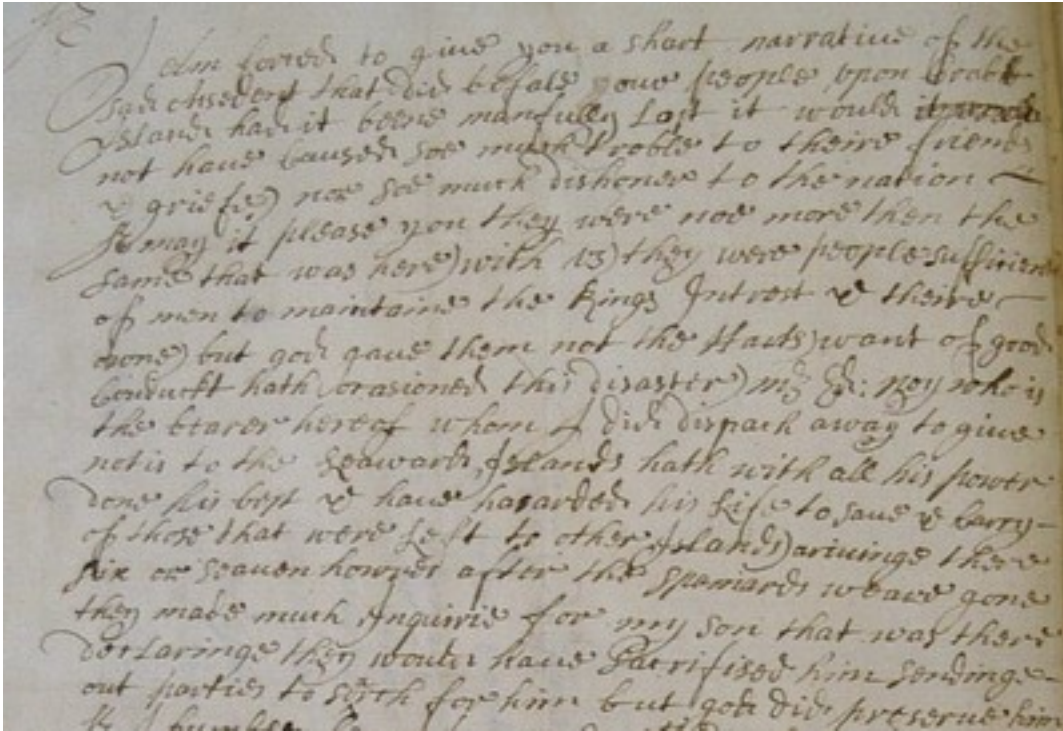 Sr
I Am forced to give you a short narrative of the
sad Accedent that did befale youe people upon Crabb
Island had it beene manfully Lost it would
not have caused soe much troble to theire friends
& griefe) nor soe much dishoner to the nation
Sr may it please you they were noe more then the
same that was here) with 13) they were people sufficient
of men to maintaine the Kings Intrest & theire
owne) but god gave them not the Harts) want of good
Conduckt hath Ocasioned this disaster) Mr Roy who is
the bearer hereof whom I did dispach away to give
notis to the Leaward Islands hath with all his power
done his best & have hasarded his Life to save & Carry
of those that were Left to other Islands) ariuinge there
six or seauen howres after the Speniards weare gone
they made much Inquirie for my son that was there
declaringe they would have Sacrifised him sendinge
out parties to serch for him but god did preserve him
Sr I humbly